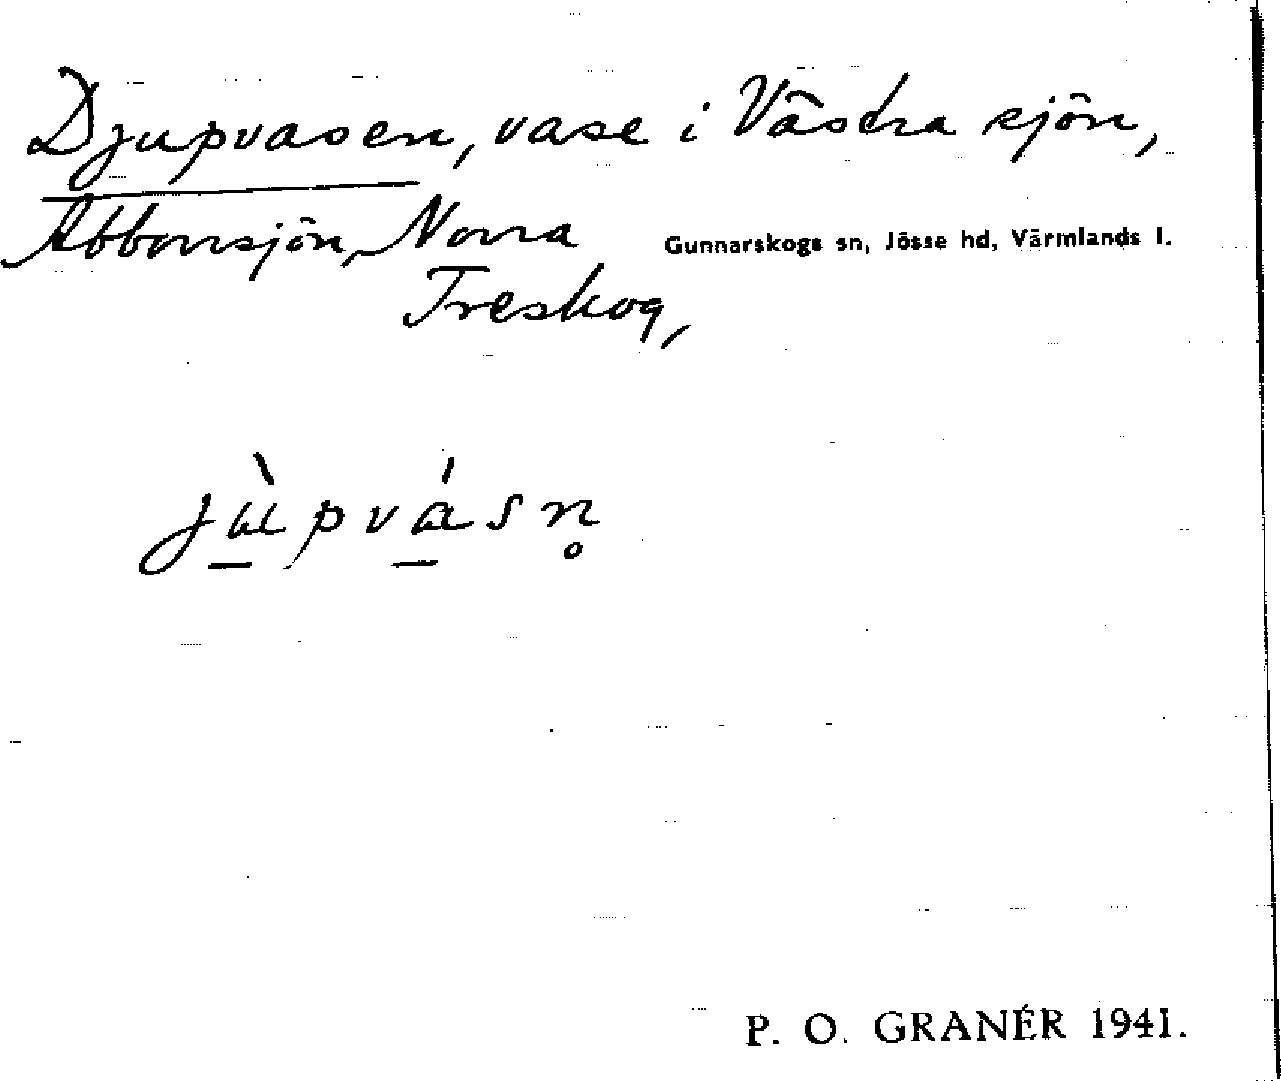 Djupvasen, vase i Västra sjön,
Abborrsjön, Norra
Gunnarskogs sn, Jösse hd, Värmlands l.
Treskog,
jùpvásn̥
P. O. GRANÉR 1941.